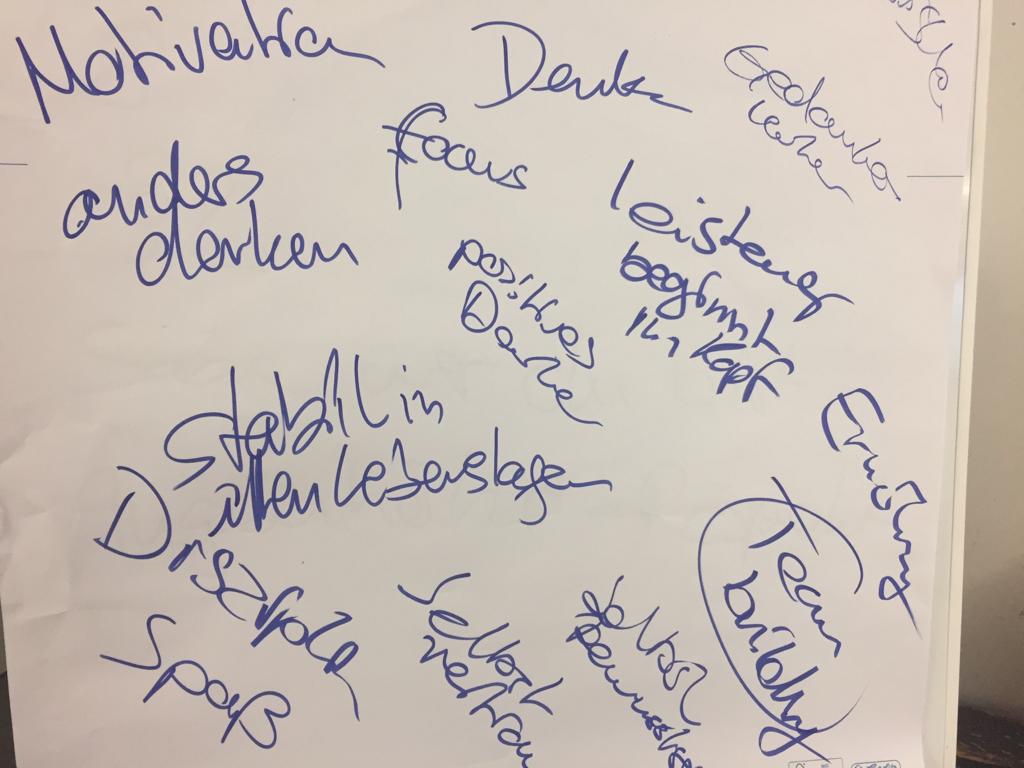 Motivation
Denke
Gedanken
anders
denken
focus
Leistung
beginnt
im Kopf
positives
Denke
stabil in
allen Lebenslagen
Ernährung
Disziplin
Spaß
Selbst
vertrau
Selbst
bewusstsei
Team
building